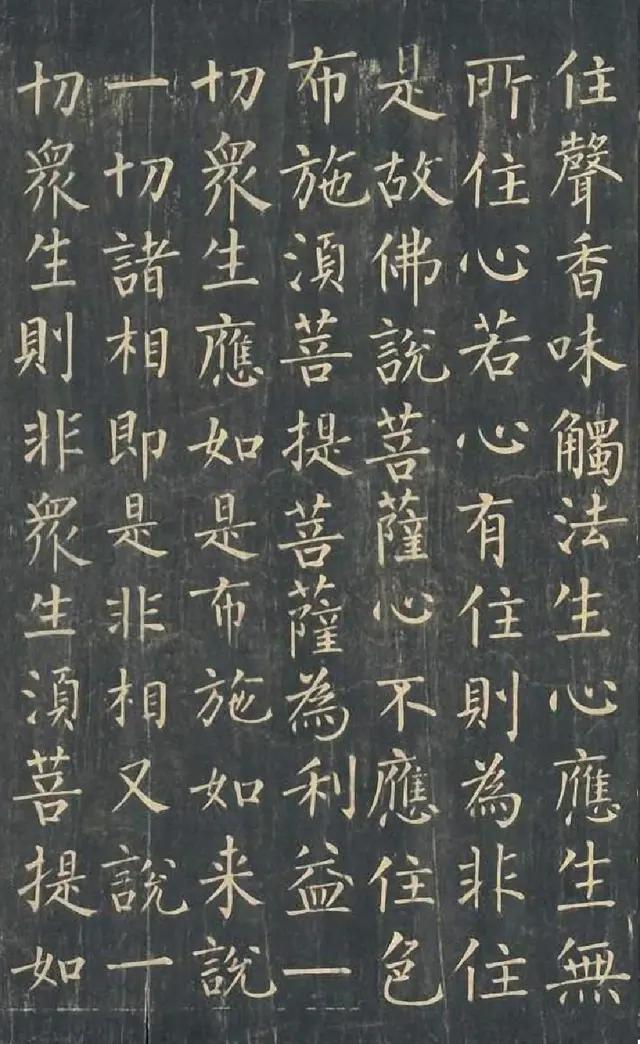 住聲香味觸法生心應生無
所住心若心有住則為非住
是故佛說菩薩心不應住色
布施湏菩提菩薩為利益一
切衆生應如是布施如来說
一切諸相即是非相又說一
切衆生則非衆生湏菩提如